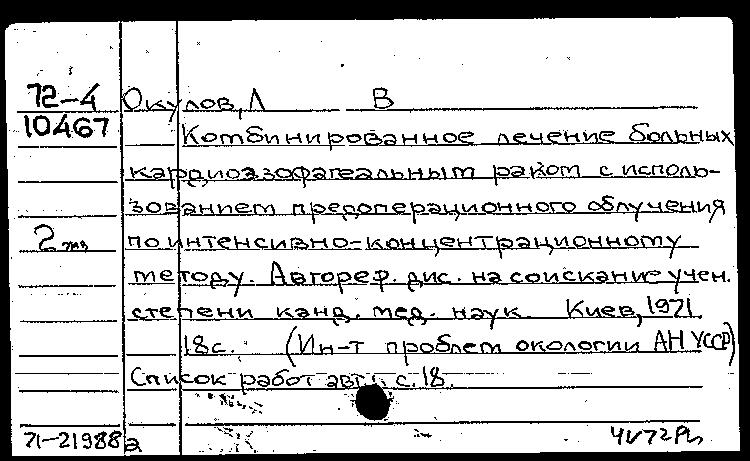 72-4 Окулов, Л В
10467 Комбинированное лечение больных
кардиоэзофагеальным раком с исполь-
зованием предоперационного облучения
2 экз по интенсивно-концентрационному
методу. Автореф. дис. на соискание учен.
степени канд. мед. наук. Киев, 1971.
18 с. (Ин-т проблем окологии АН УССР)
Список работ авт.: с. 18.
71-21988а